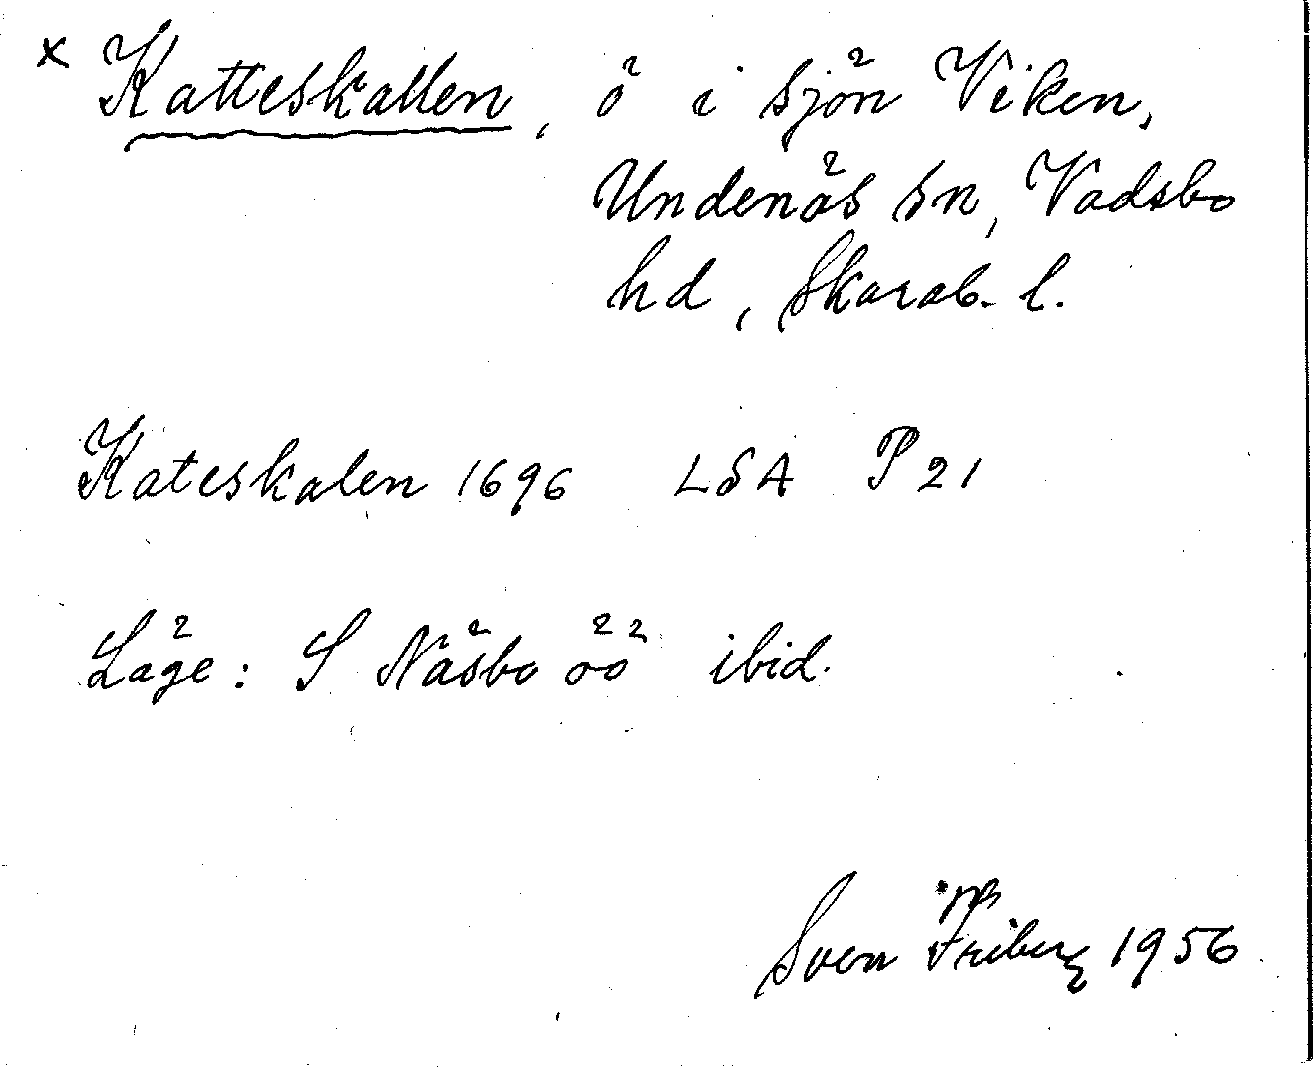 x Katteskallen, ö i sjön Viken,
Undenäs sn, Vadsbo
hd, Skarab. l.
Kateskalen 1696 LSA P 21
Läge: S Näsbo öö ibid.
Sven Friberg 1956